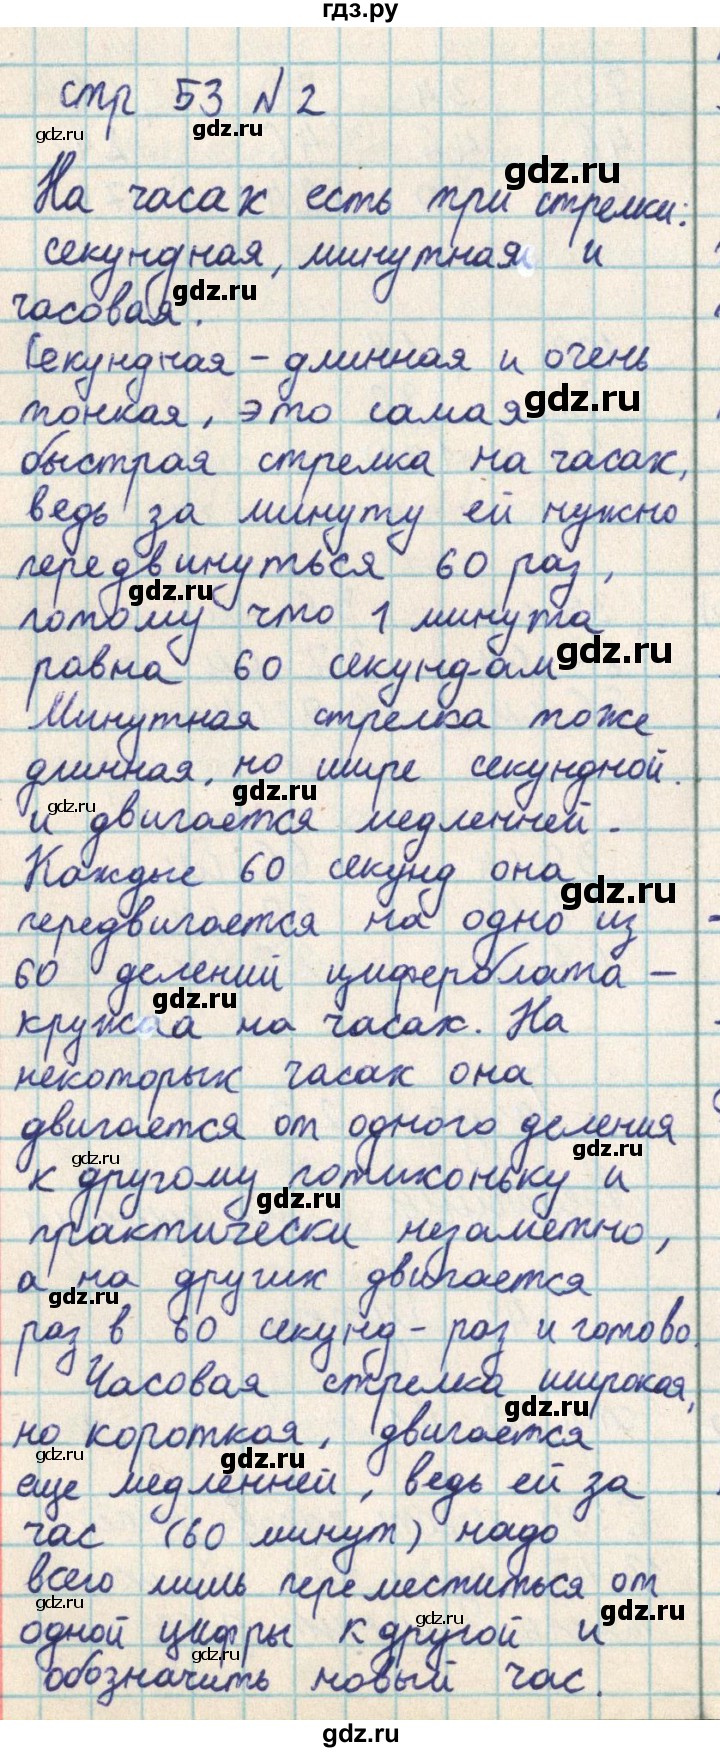 гдз.ру
стр 53 № 2
gdz.ru
gdz.ru
gdz.ru
На часах есть три стрелки:
секундная, минутная и
gdz.ru
часовая.
Секундная – длинная и очень
gdz.ru
тонкая, это самая
быстрая стрелка на часах,
ведь за минуту ей нужно
передвинуться 60 раз,
gdz.ru
потому что 1 минута
gdz.ru
равна 60 секунд-ам
Минутная стрелка тоже
длинная, но шире секундной
gdz.ru
gdz.ru
и двигается медленней.
Каждые 60 секунд она
gdz.ru
передвигается на одно из
60 делений циферблата –
gdz.ru
кружка на часах. На
некоторых часах она
двигается от одного деления
gdz.ru
gdz.ru
к другому потихоньку и
gdz.ru
практически незаметно,
а на других двигается
gdz.ru
раз в 60 секунд – раз и готово.
Часовая стрелка широкая,
gdz.ru
но короткая, двигается
gdz.ru
gdz.ru
еще медленней, ведь ей за
час (60 минут) надо
всего лишь переместиться от
gdz.ru
gdz.ru
gdz.ru
одной цифры к другой и
gdz.ru
обозначить новый час.
gdz.ru